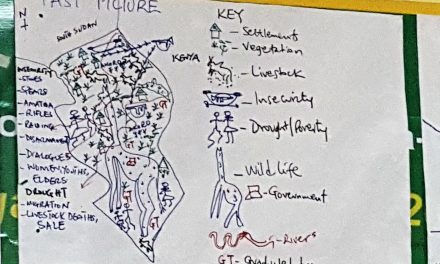 PAST PICTURE
N
SOUTH SUDAN
KENYA
INSECURITY
-STONES
-SPEARS
-AMATIDA
-RIFLES
-RAIDING
-DISARMAMENT
-DIALOGUES
-WOMEN, YOUTHS,
ELDERS
DROUGHT
-MIGRATION
-LIVESTOCK DEATHS,
SALE
KEY
- Settlements
- Vegetation
- Livestock
- Insecurity
- Drought/Poverty
- Wildlife
- Government
- Rivers
GT-
2